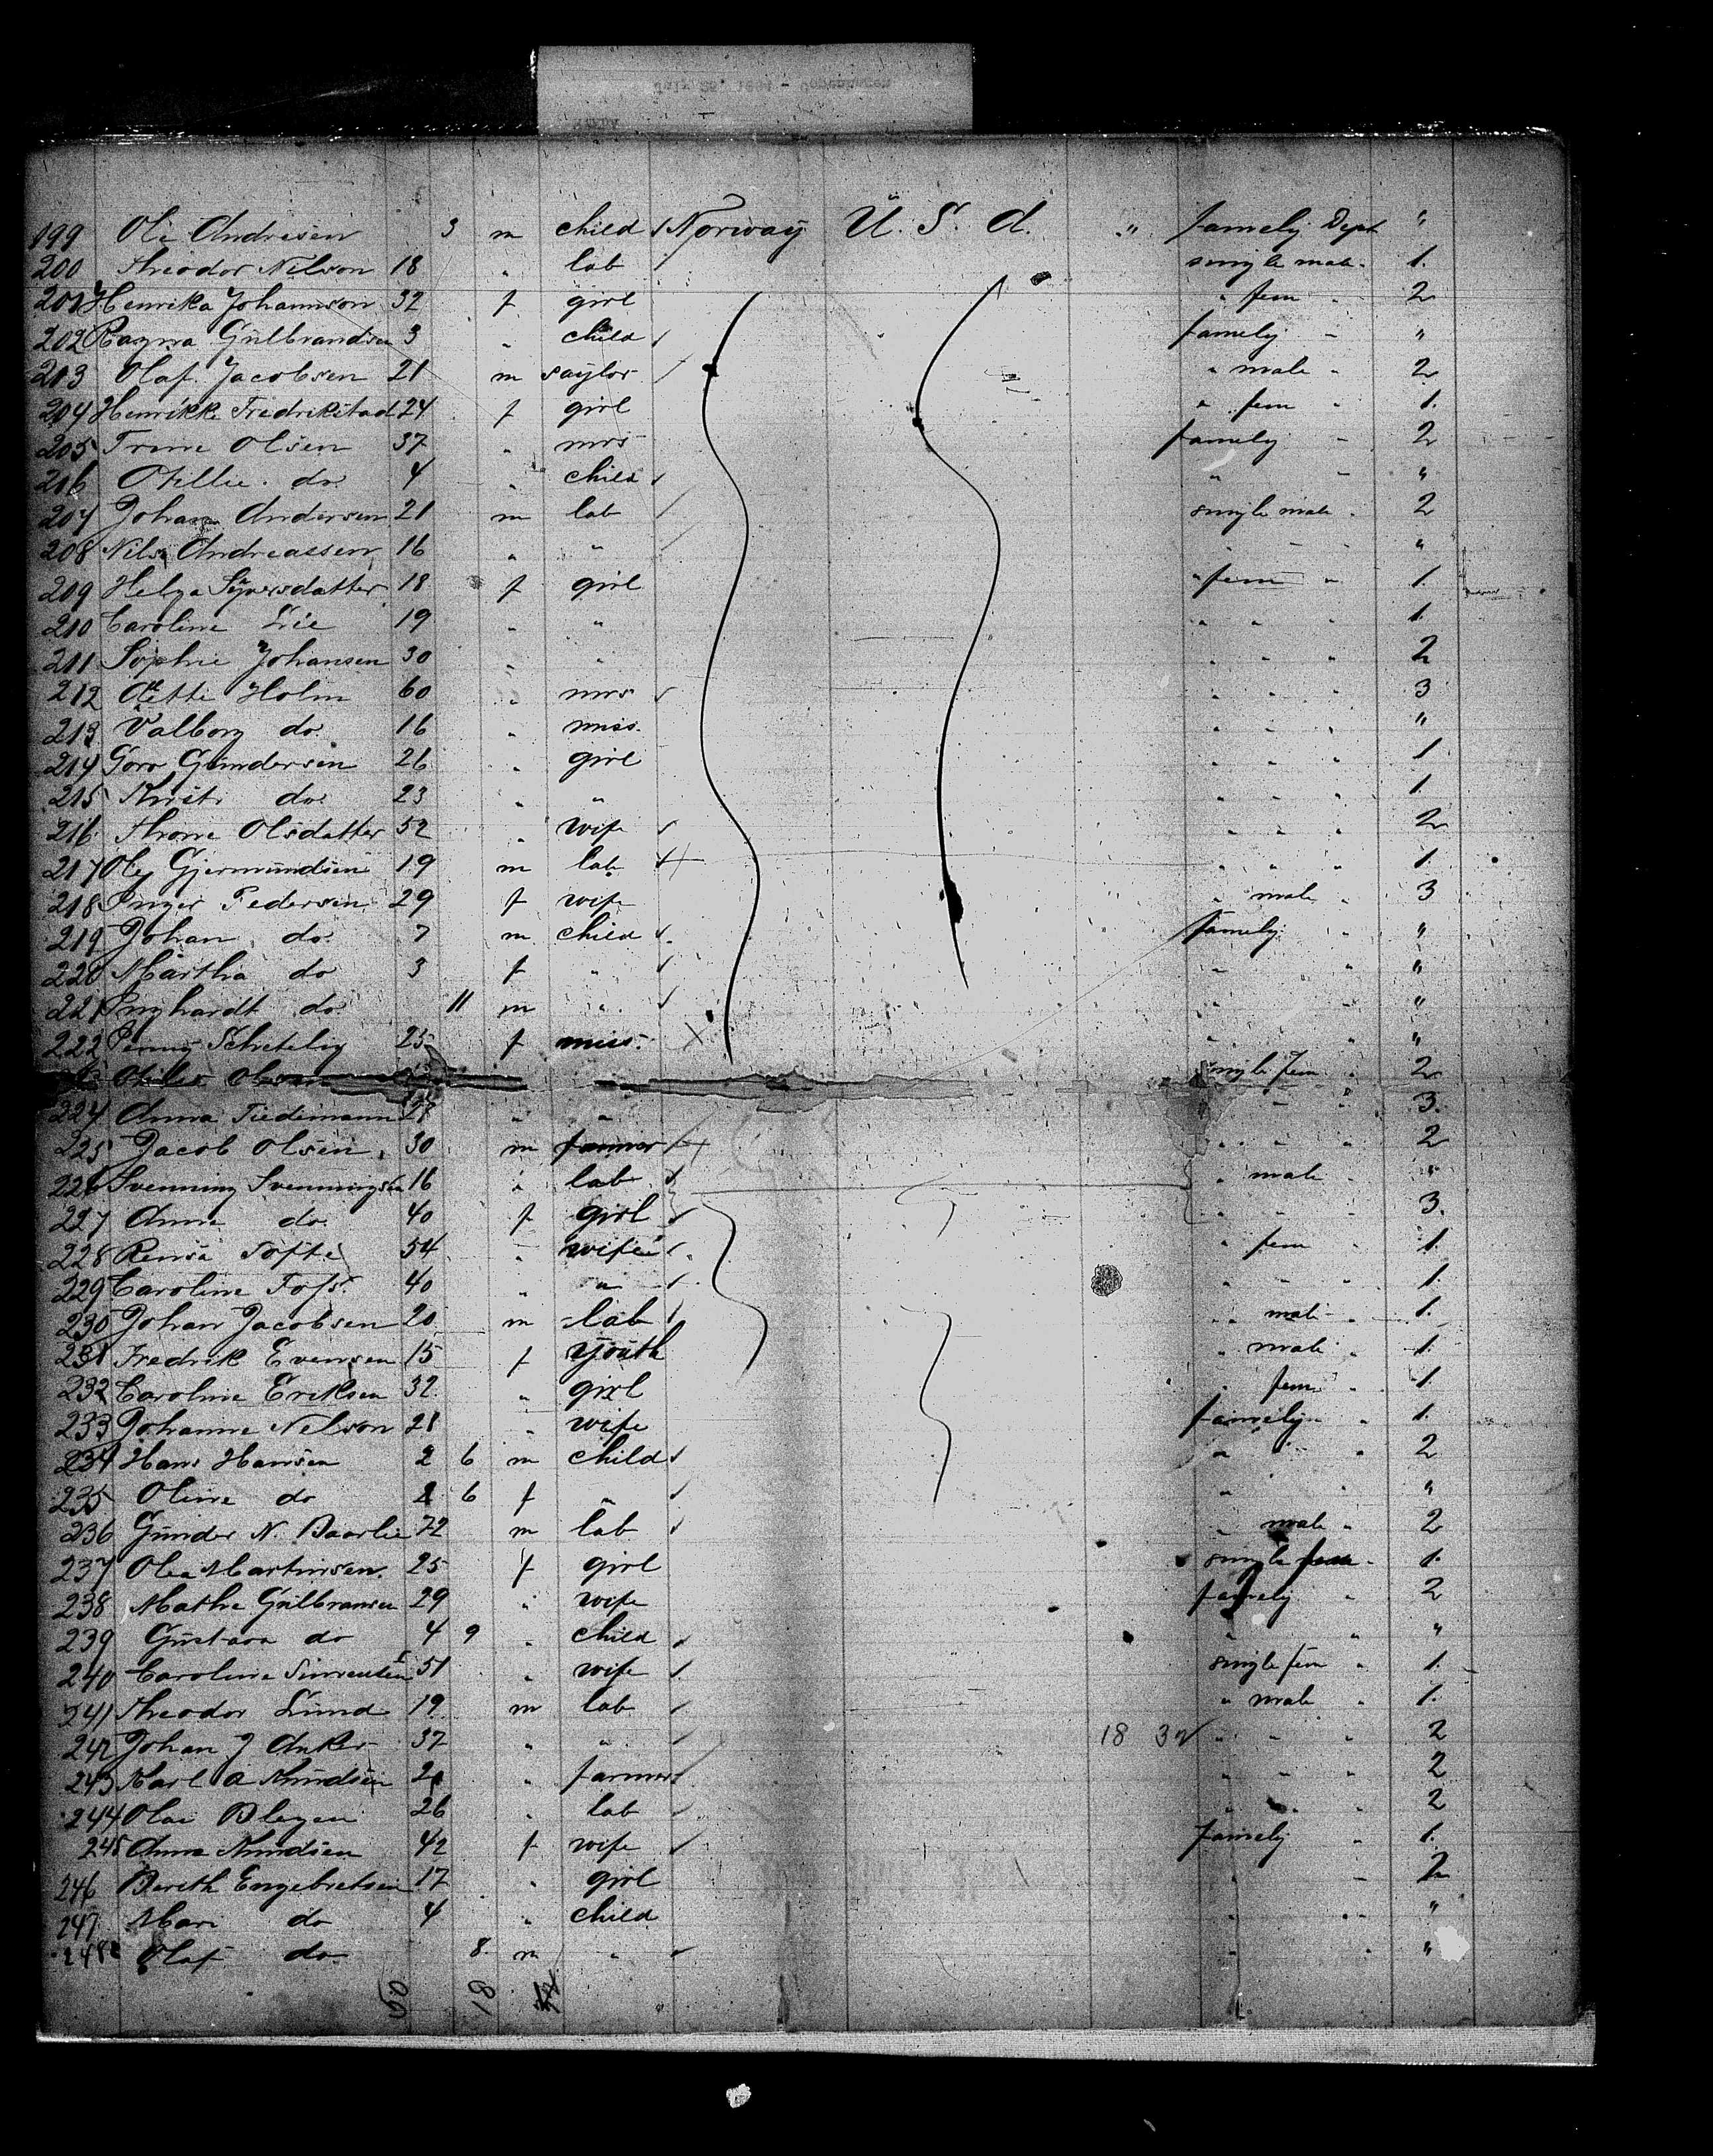 199 Ole Andresen 3 m child Norway U. S. A. " famely Dept "
200 Theodor Nilson 18 " lab single male - 1.
201 Henrika Johannson 32 f girl " fem - 2
202 Ragna Gulbrandsen 3 " child famely - "
203 Olaf Jacobsen 21 m saylor " male " 2
204 Henrikke Fredrikstad 24 f girl " fem " 1.
205 Trine Olsen 37 " mrs famely - 2
206 Otillie do 4 " child " - "
207 Johan Andersen 21 m lab single male - 2
208 Nils Andreassen 16 " " " - - "
209 Helga Syversdatter 18 f girl " fem " 1.
210 Caroline Lie 19 " " " " " 1.
211 Sophie Johansen 30 " " " " " 2
212 Holm 60 " mrs " " " 3
213 Valborg do 16 " miss. " " " "
214 Goro Gundersen 26 " girl " " " 1.
215 Kristi do 23 " " " " " 1.
216 Olsdatter 52 " wife " " " 2
217 Ole Gjermundsen 19 m lab " " " 1.
218 Inger Pedersen 29 f wife " male " 3
219 Johan do. 7 m child famely "
220 Martha do 3 f " " " "
221 Inghardt do. 11 m " " "
222 Schetelig 25 f miss. " " "
Otilie Olsen single fem " 2
224 Anna Tiedemann 27 " " - " 3.
225 Jacob Olsen 30 m farmer " " " 2
226 Svenning Svenningsen 16 " lab " male " "
227 Anne do 40 f girl " " " 3.
228 Tofte 54 " wife " fem " 1.
229 Caroline 40 " " " " " 1.
230 Johan Jacobsen 20 m lab " male " 1.
231 Fredrik Evensen 15 f youth " male " 1.
232 Caroline Eriksen 32 " girl " fem " 1.
233 Johanne Nelson 21 " wife famely " 1.
234 Hans Hansen 2 6 m child " " 2
235 Oline do 2 6 f " " " "
236 Gunder N. Baarlie 72 m lab " male " 2
237 Olea Martinsen 25 f girl single fem - 1.
238 Mathe Gulbransen 29 " wife famely " 2
239 Gustava do 4 9 " child " " "
240 Caroline Simensen 51 " wife single fem " 1.
241 Theodor Lund 19 m lab " male " 1.
242 Johan J Anker 37 " " 18 32 " " " 2
243 Karl A Knudsen 21 " farmer " " " 2
244 Olai Blegen 26 " lab " " " 2
245 Anna Knudsen 42 f wife famely " 1.
246 Bereth Engebretsen 17 " girl " - 2
247 Mari do 4 " child " " "
248 Olaf do 8 m " " " "
50 18